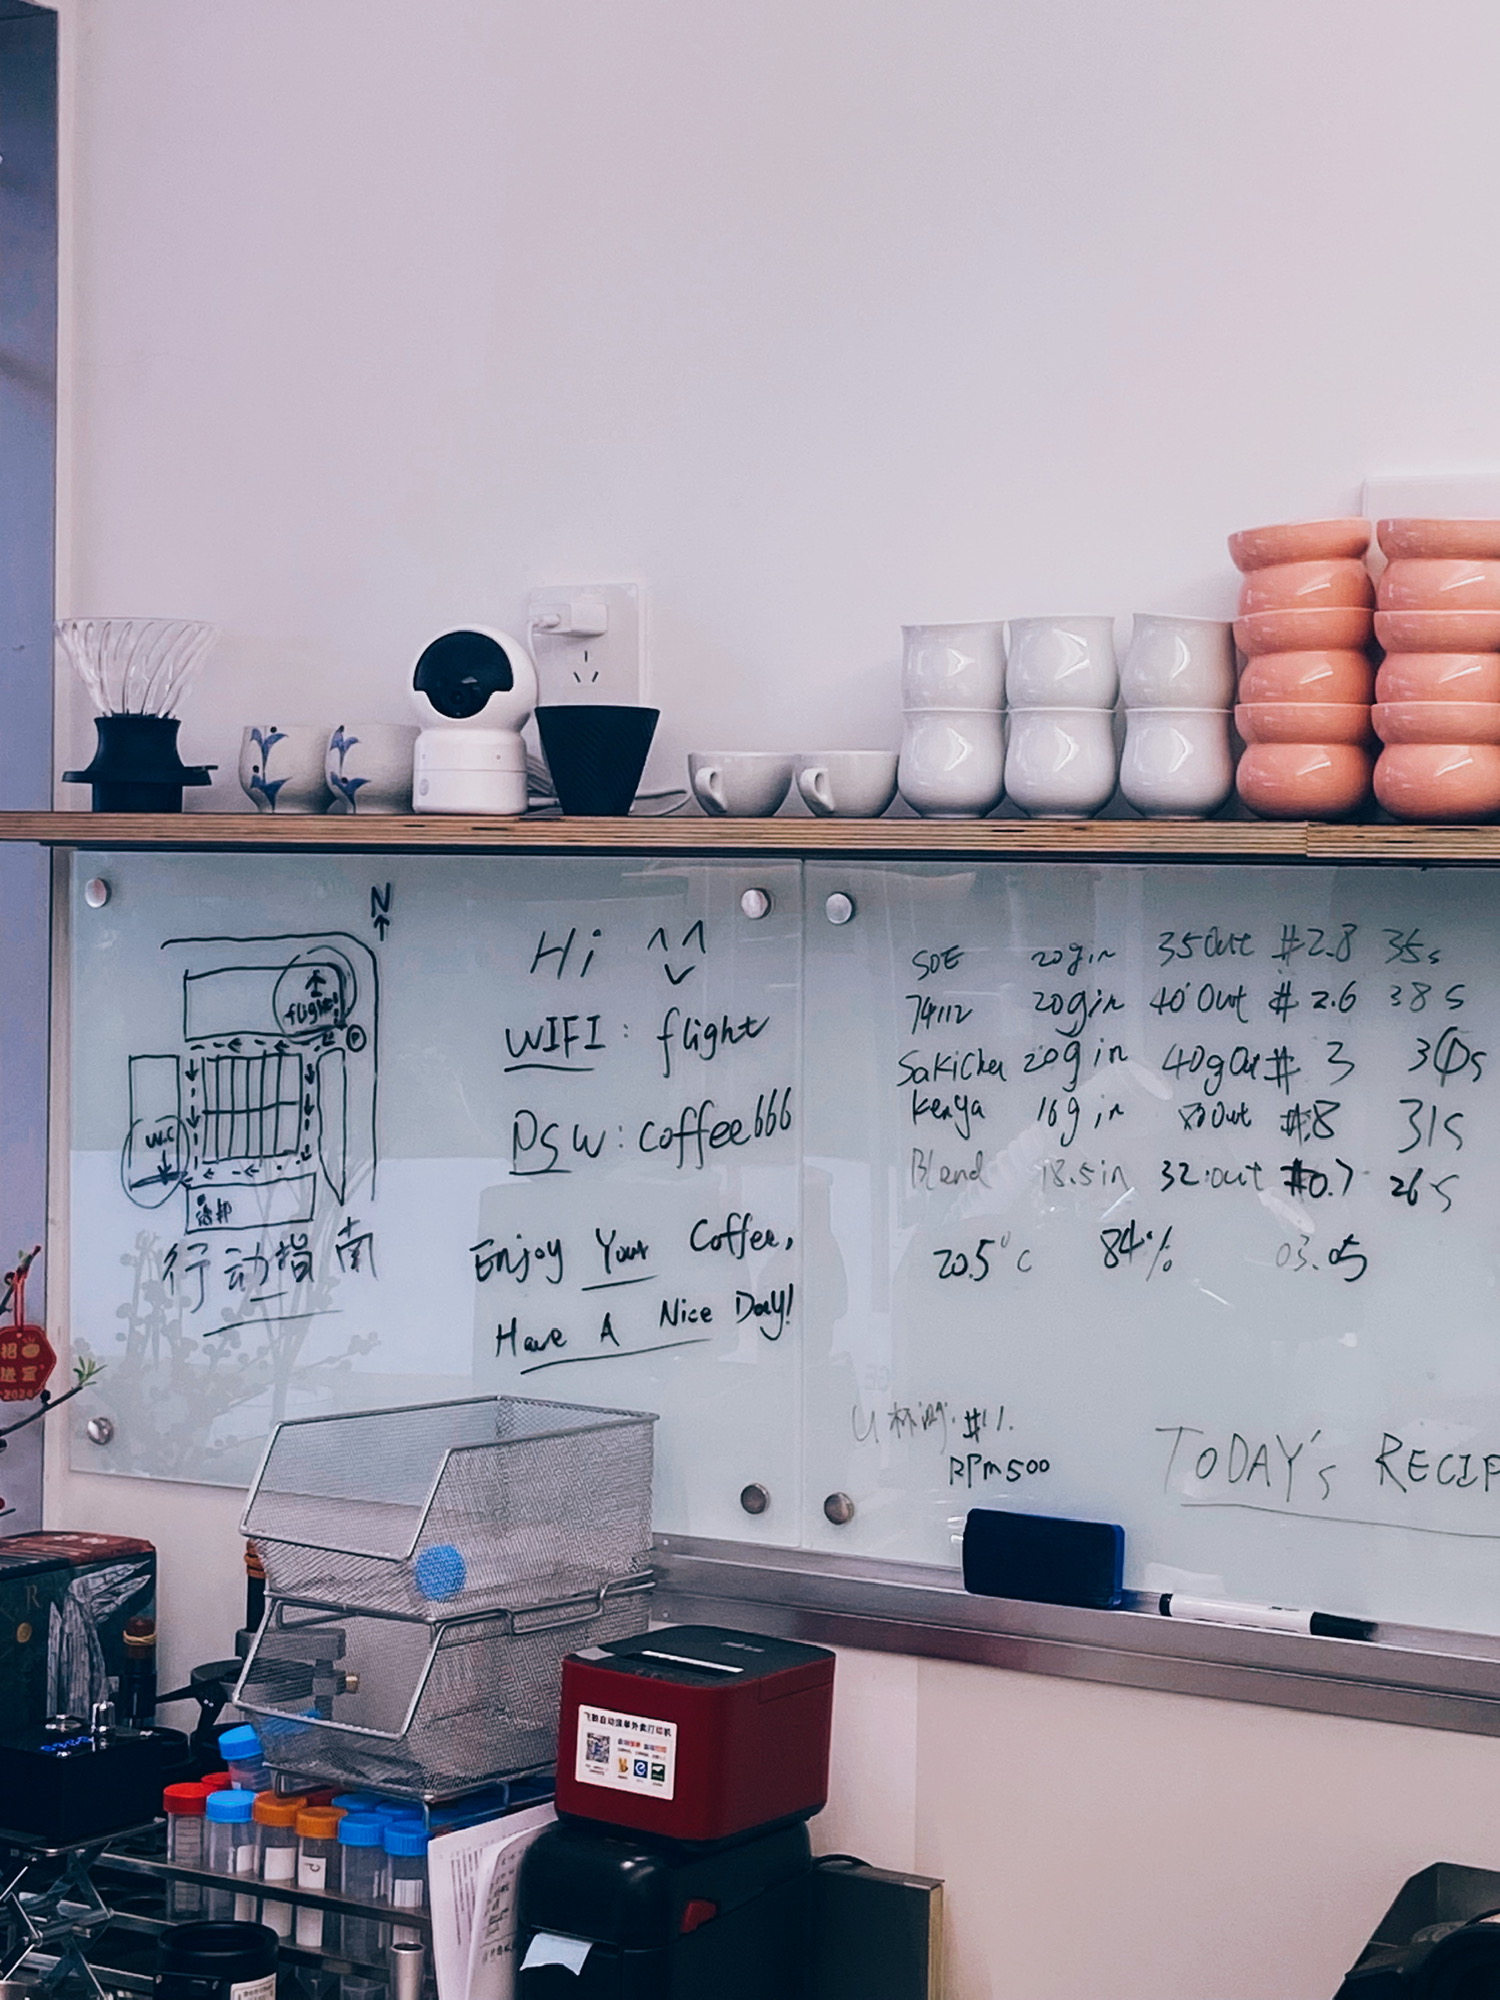 N
flight
P
W.C
行动指南
Hi
WIFI: flight
PSW: coffee666
Enjoy Your Coffee,
Have A Nice Day!
SOE 20g in 35 Out #2.8 35s
74112 20g in 40 Out # 2.6 38s
20g in 40g Out # 3
Kenya 16g in Out #.8 31s
Blend 18.5 in 32 out #0.7 26s
20.5°C 84% 03.05
#11.
RPM500
TODAY's RECIP
招
进宝
2024
飞鹅自动接单外卖打印机